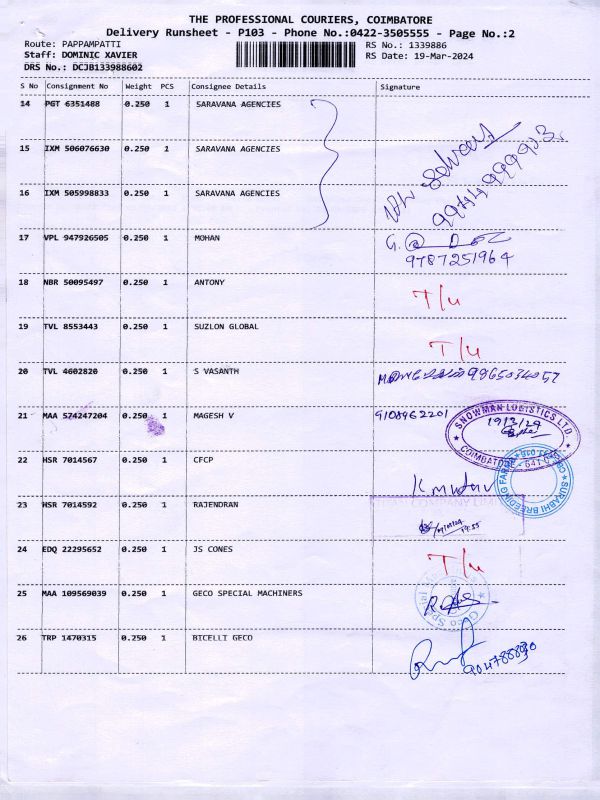 THE PROFESSIONAL COURIERS, COIMBATORE
Delivery Runsheet - P103 - Phone No.:0422-3505555 - Page No.:2
Route: PAPPAMPATTI RS No.: 1339886
Staff: DOMINIC XAVIER RS Date: 19-Mar-2024
DRS No.: DCJB133988602
S No Consignment No Weight PCS Consignee Details Signature
14 PGT 6351488 0.250 1 SARAVANA AGENCIES
15 IXM 506076630 0.250 1 SARAVANA AGENCIES
16 IXM 505998833 0.250 1 SARAVANA AGENCIES
17 VPL 947926505 0.250 1 MOHAN
9787251964
18 NBR 50095497 0.250 1 ANTONY T/u
19 TVL 8553443 0.250 1 SUZLON GLOBAL T/u
20 TVL 4602820 0.250 1 S VASANTH
21 MAA 574247204 0.250 1 MAGESH V 9108962201
SNOWMAN LOGISTICS LTD.
19/3/24
COIMBATORE
22 HSR 7014567 0.250 1 CFCP
SURABHI BREEDING FARM
23 HSR 7014592 0.250 1 RAJENDRAN
24 EDQ 22295652 0.250 1 JS CONES T/u
25 MAA 109569039 0.250 1 GECO SPECIAL MACHINERS
26 TRP 1470315 0.250 1 BICELLI GECO